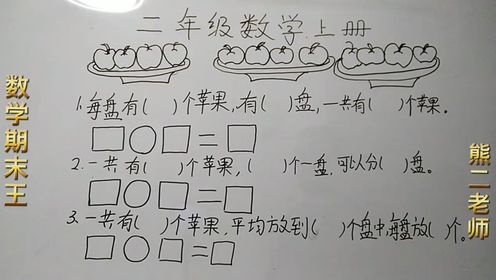 二年级数学上册
1.每盘有( )个苹果,有( )盘,一共有( )个苹果.
□○□=□
2.一共有( )个苹果,( )个一盘,可以分( )盘。
□○□=□
3.一共有( )个苹果,平均放到( )个盘中,每盘放( )个。
□○□=□
数学期末王
熊二老师